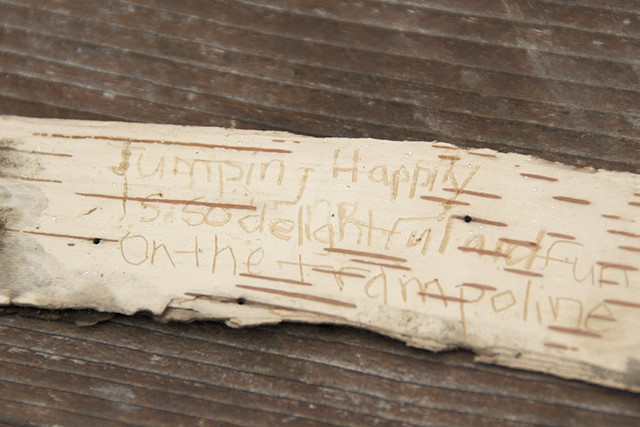 Jumping Happily
Is so delightful and fun
On the trampoline